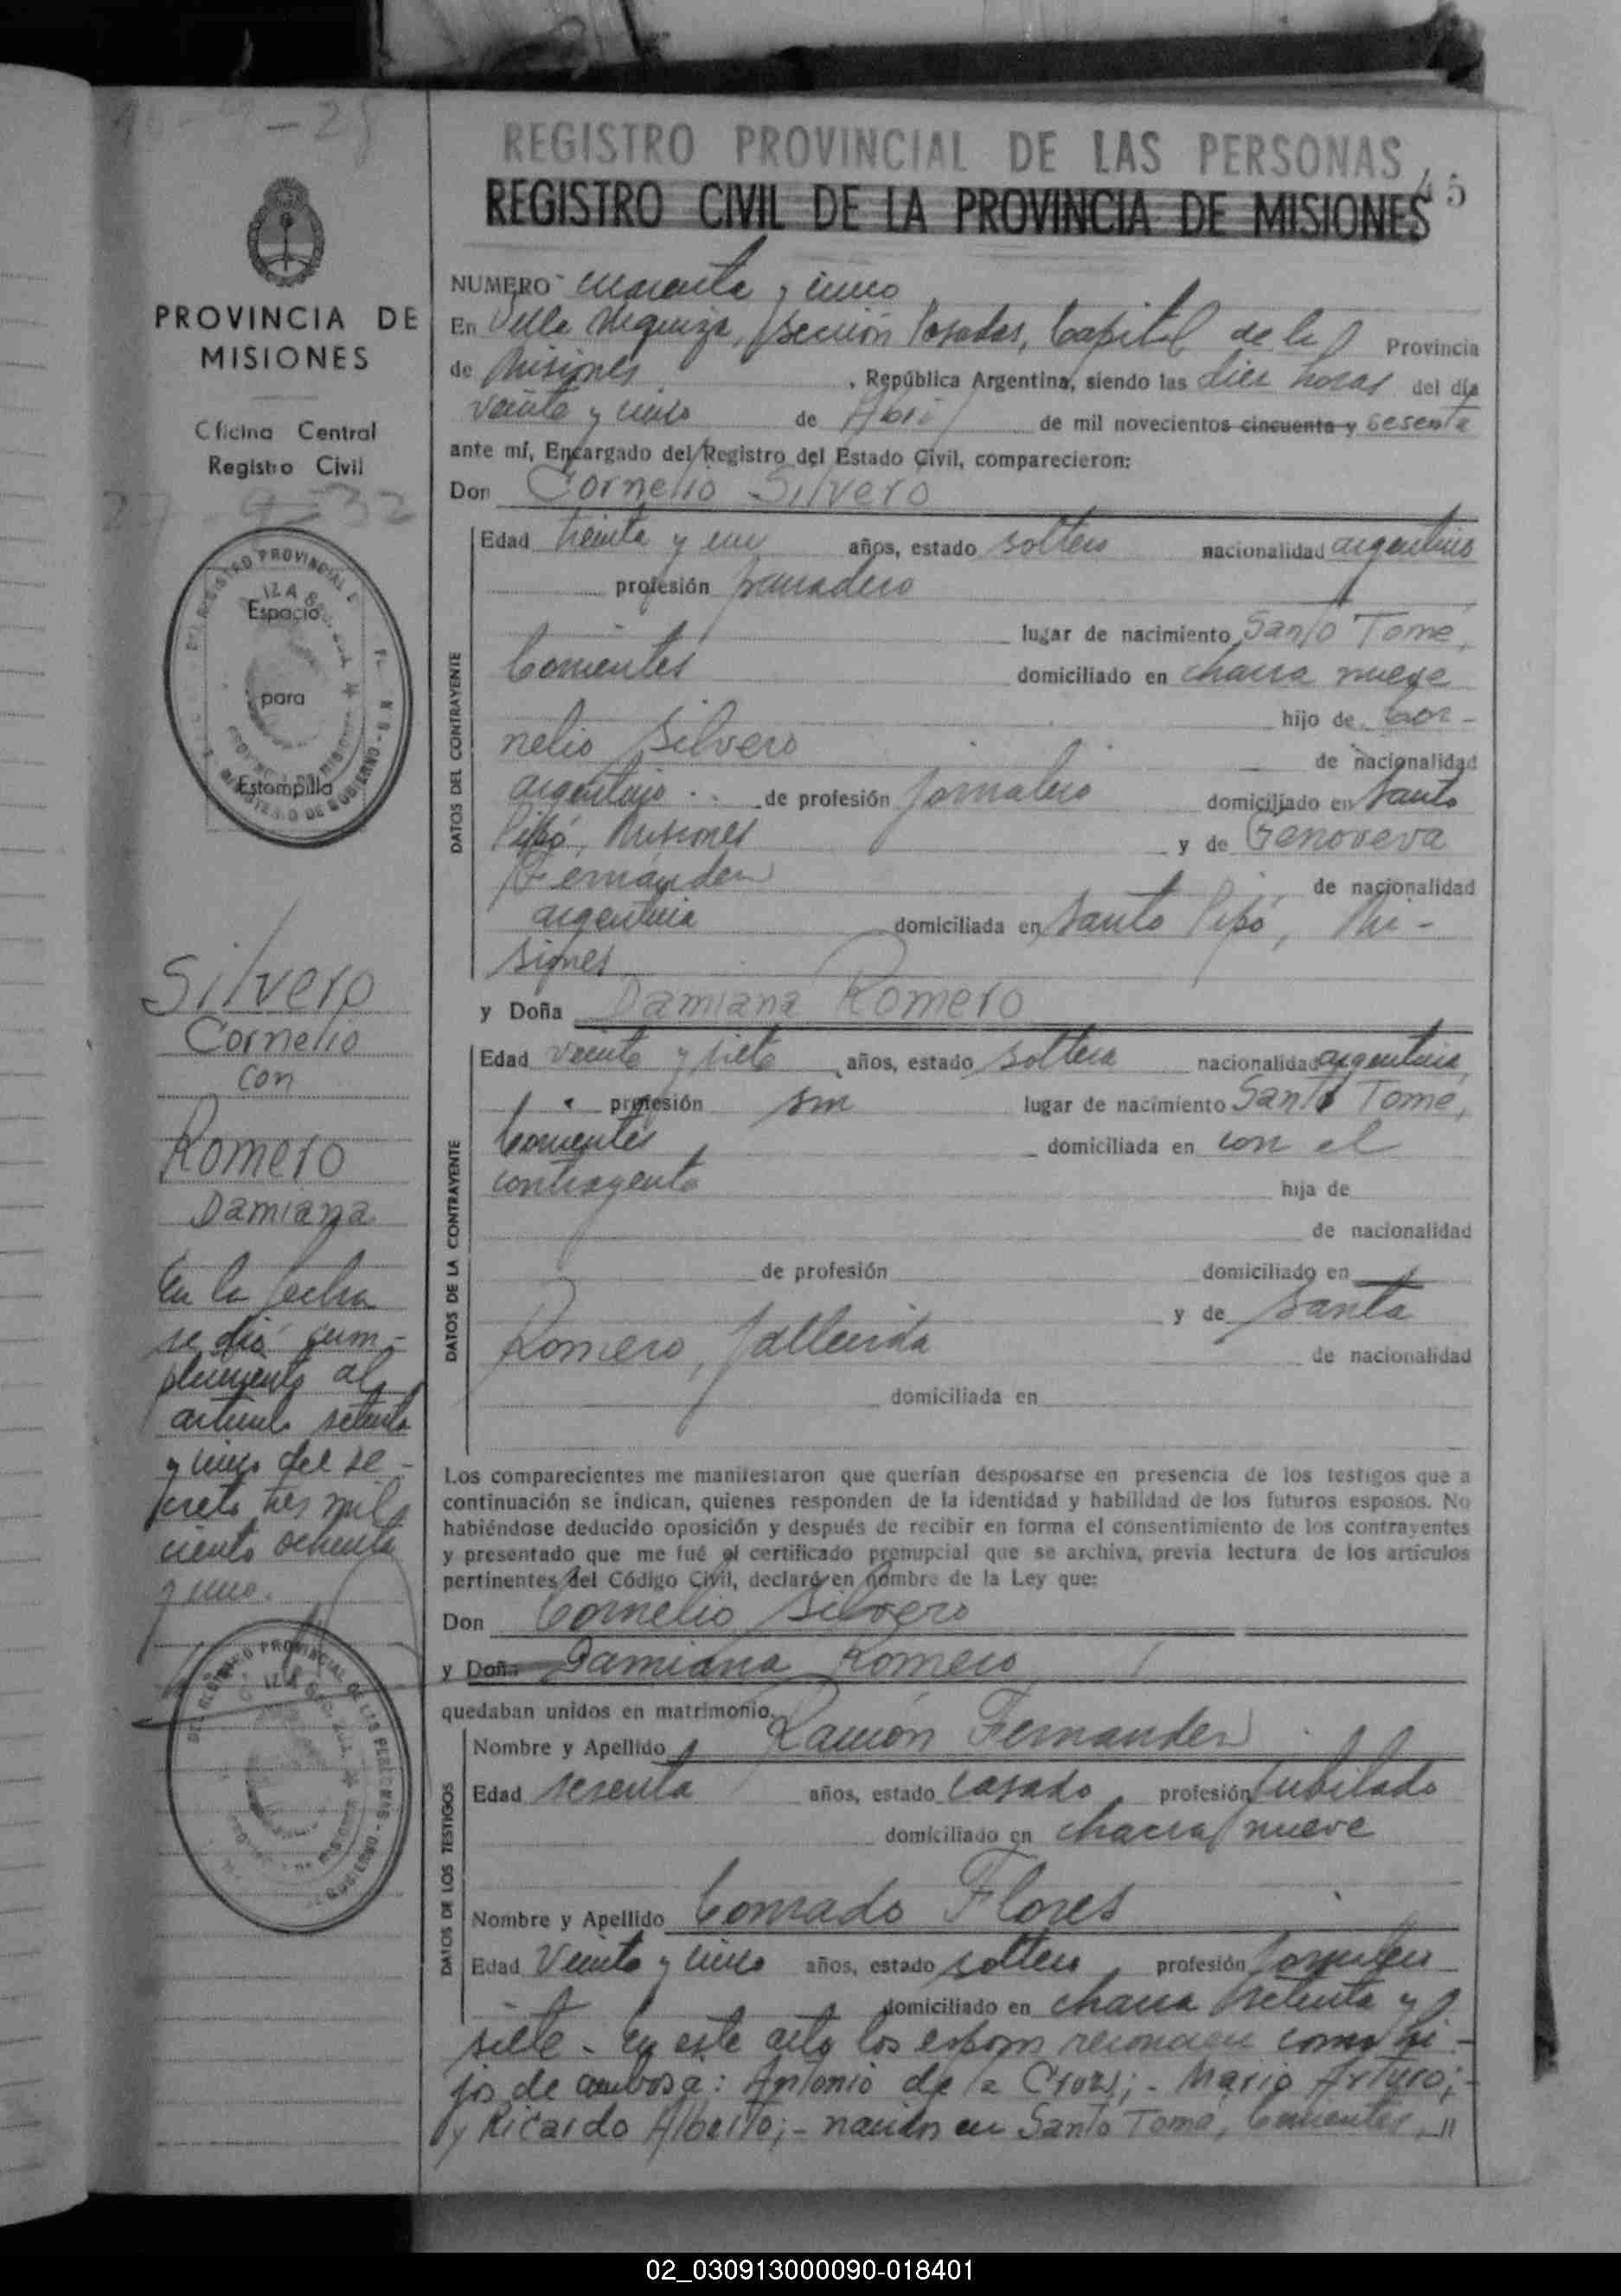 10-9-28
PROVINCIA DE
MISIONES
Oficina Central
Registro Civil
27-9-32
Espacio
para
Estampilla
Silvero
Cornelio
con
Romero
Damiana
En la fecha
se dió cum-
plimiento al
artículo setenta
y cinco del de-
creto tres mil
ciento ochenta
y uno.
REGISTRO PROVINCIAL DE LAS PERSONAS
REGISTRO CIVIL DE LA PROVINCIA DE MISIONES
45
NUMERO cuarenta y cinco
En Villa Urquiza, sección Posadas, Capital de la Provincia
de Misiones, República Argentina, siendo las diez horas del día
veinte y cinco de Abril de mil novecientos cincuenta y sesenta
ante mí, Encargado del Registro del Estado Civil, comparecieron:
Don Cornelio Silvero
DATOS DEL CONTRAYENTE
Edad treinta y un años, estado soltero nacionalidad argentino
profesión panadero
lugar de nacimiento Santo Tomé,
Corrientes domiciliado en chacra nueve
hijo de Cor-
nelio Silvero de nacionalidad
argentino de profesión jornalero domiciliado en Santo
Pipó, Misiones y de Genoveva
Fernández de nacionalidad
argentina domiciliada en Santo Pipó, Mi-
siones
y Doña Damiana Romero
DATOS DE LA CONTRAYENTE
Edad veinte y siete años, estado soltera nacionalidad argentina,
profesión sin lugar de nacimiento Santo Tomé,
Corrientes domiciliada en con el
contrayente hija de
de nacionalidad
de profesión domiciliado en
y de Santa
Romero, fallecida de nacionalidad
domiciliada en
Los comparecientes me manifestaron que querían desposarse en presencia de los testigos que a
continuación se indican, quienes responden de la identidad y habilidad de los futuros esposos. No
habiéndose deducido oposición y después de recibir en forma el consentimiento de los contrayentes
y presentado que me fué el certificado prenupcial que se archiva, previa lectura de los artículos
pertinentes del Código Civil, declaré en nombre de la Ley que:
Don Cornelio Silvero
y Doña Damiana Romero
quedaban unidos en matrimonio.
DATOS DE LOS TESTIGOS
Nombre y Apellido Ramón Fernandez
Edad sesenta años, estado casado, profesión jubilado
domiciliado en chacra nueve
Nombre y Apellido Conrado Flores
Edad Veinte y cinco años, estado soltero, profesión jornalero
domiciliado en chacra setenta y
siete - En este acto los esposos reconocen como hi-
jos de ambos a: Antonio de la Cruz;- Mario Arturo;-
y Ricardo Alberto;- nacidos en Santo Tomé, Corrientes,
02_030913000090-018401